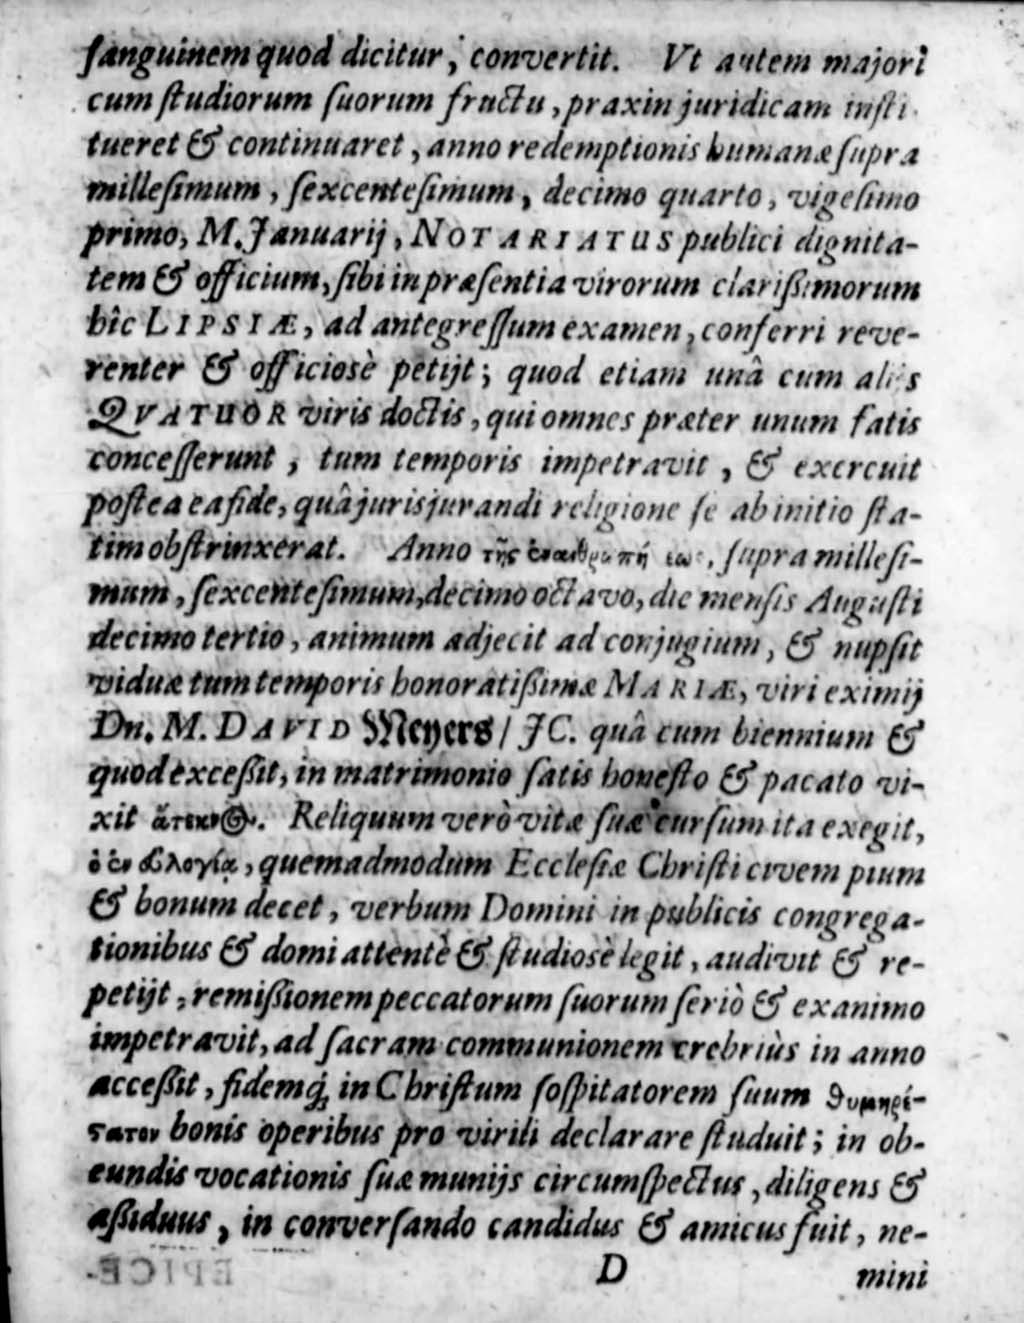 ſanguinem quod dicitur, convertit. Vt autem majori
cum ſtudiorum ſuorum fructu, praxin juridicam inſti-
tueret & continuaret, anno redemptionis humanæ ſupra
milleſimum, ſexcenteſimum, decimo quarto, vigeſimo
primo, M. Januarij, NOTARIATUS publici dignita-
tem & officium, ſibi in præſentia virorum clarißimorum
hîc LIPSIÆ, ad antegreſſum examen, conferri reve-
renter & officiosè petijt; quod etiam unâ cum aliis
QVATUOR viris doctis, qui omnes præter unum fatis
conceſſerunt, tum temporis impetravit, & exercuit
poſtea ea fide, quâ jurisjurandi religione ſe ab initio ſta-
tim obſtrinxerat. Anno τῆς ſupra milleſi-
mum, ſexcenteſimum, decimo octavo, die menſis Auguſti
decimo tertio, animum adjecit ad conjugium, & nupſit
viduæ tum temporis honoratißimæ MARIÆ, viri eximij
Dn. M. DAVID Meyers / JC. quâ cum biennium &
quod exceßit, in matrimonio ſatis honeſto & pacato vi-
xit ἄτεκνος. Reliquum verò vitæ ſuæ curſum ita exegit,
ὁ ἐν εὐλογίᾳ, quemadmodum Eccleſiæ Chriſti civem pium
& bonum decet, verbum Domini in publicis congrega-
tionibus & domi attentè & ſtudiosè legit, audivit & re-
petijt, remißionem peccatorum ſuorum ſeriò & ex animo
impetravit, ad ſacram communionem crebriùs in anno
acceßit, fidemq́; in Chriſtum ſoſpitatorem ſuum θυμηρέ-
στατον bonis operibus pro virili declarare ſtuduit; in ob-
eundis vocationis ſuæ munijs circumſpectus, diligens &
aßiduus, in converſando candidus & amicus fuit, ne-
D mini